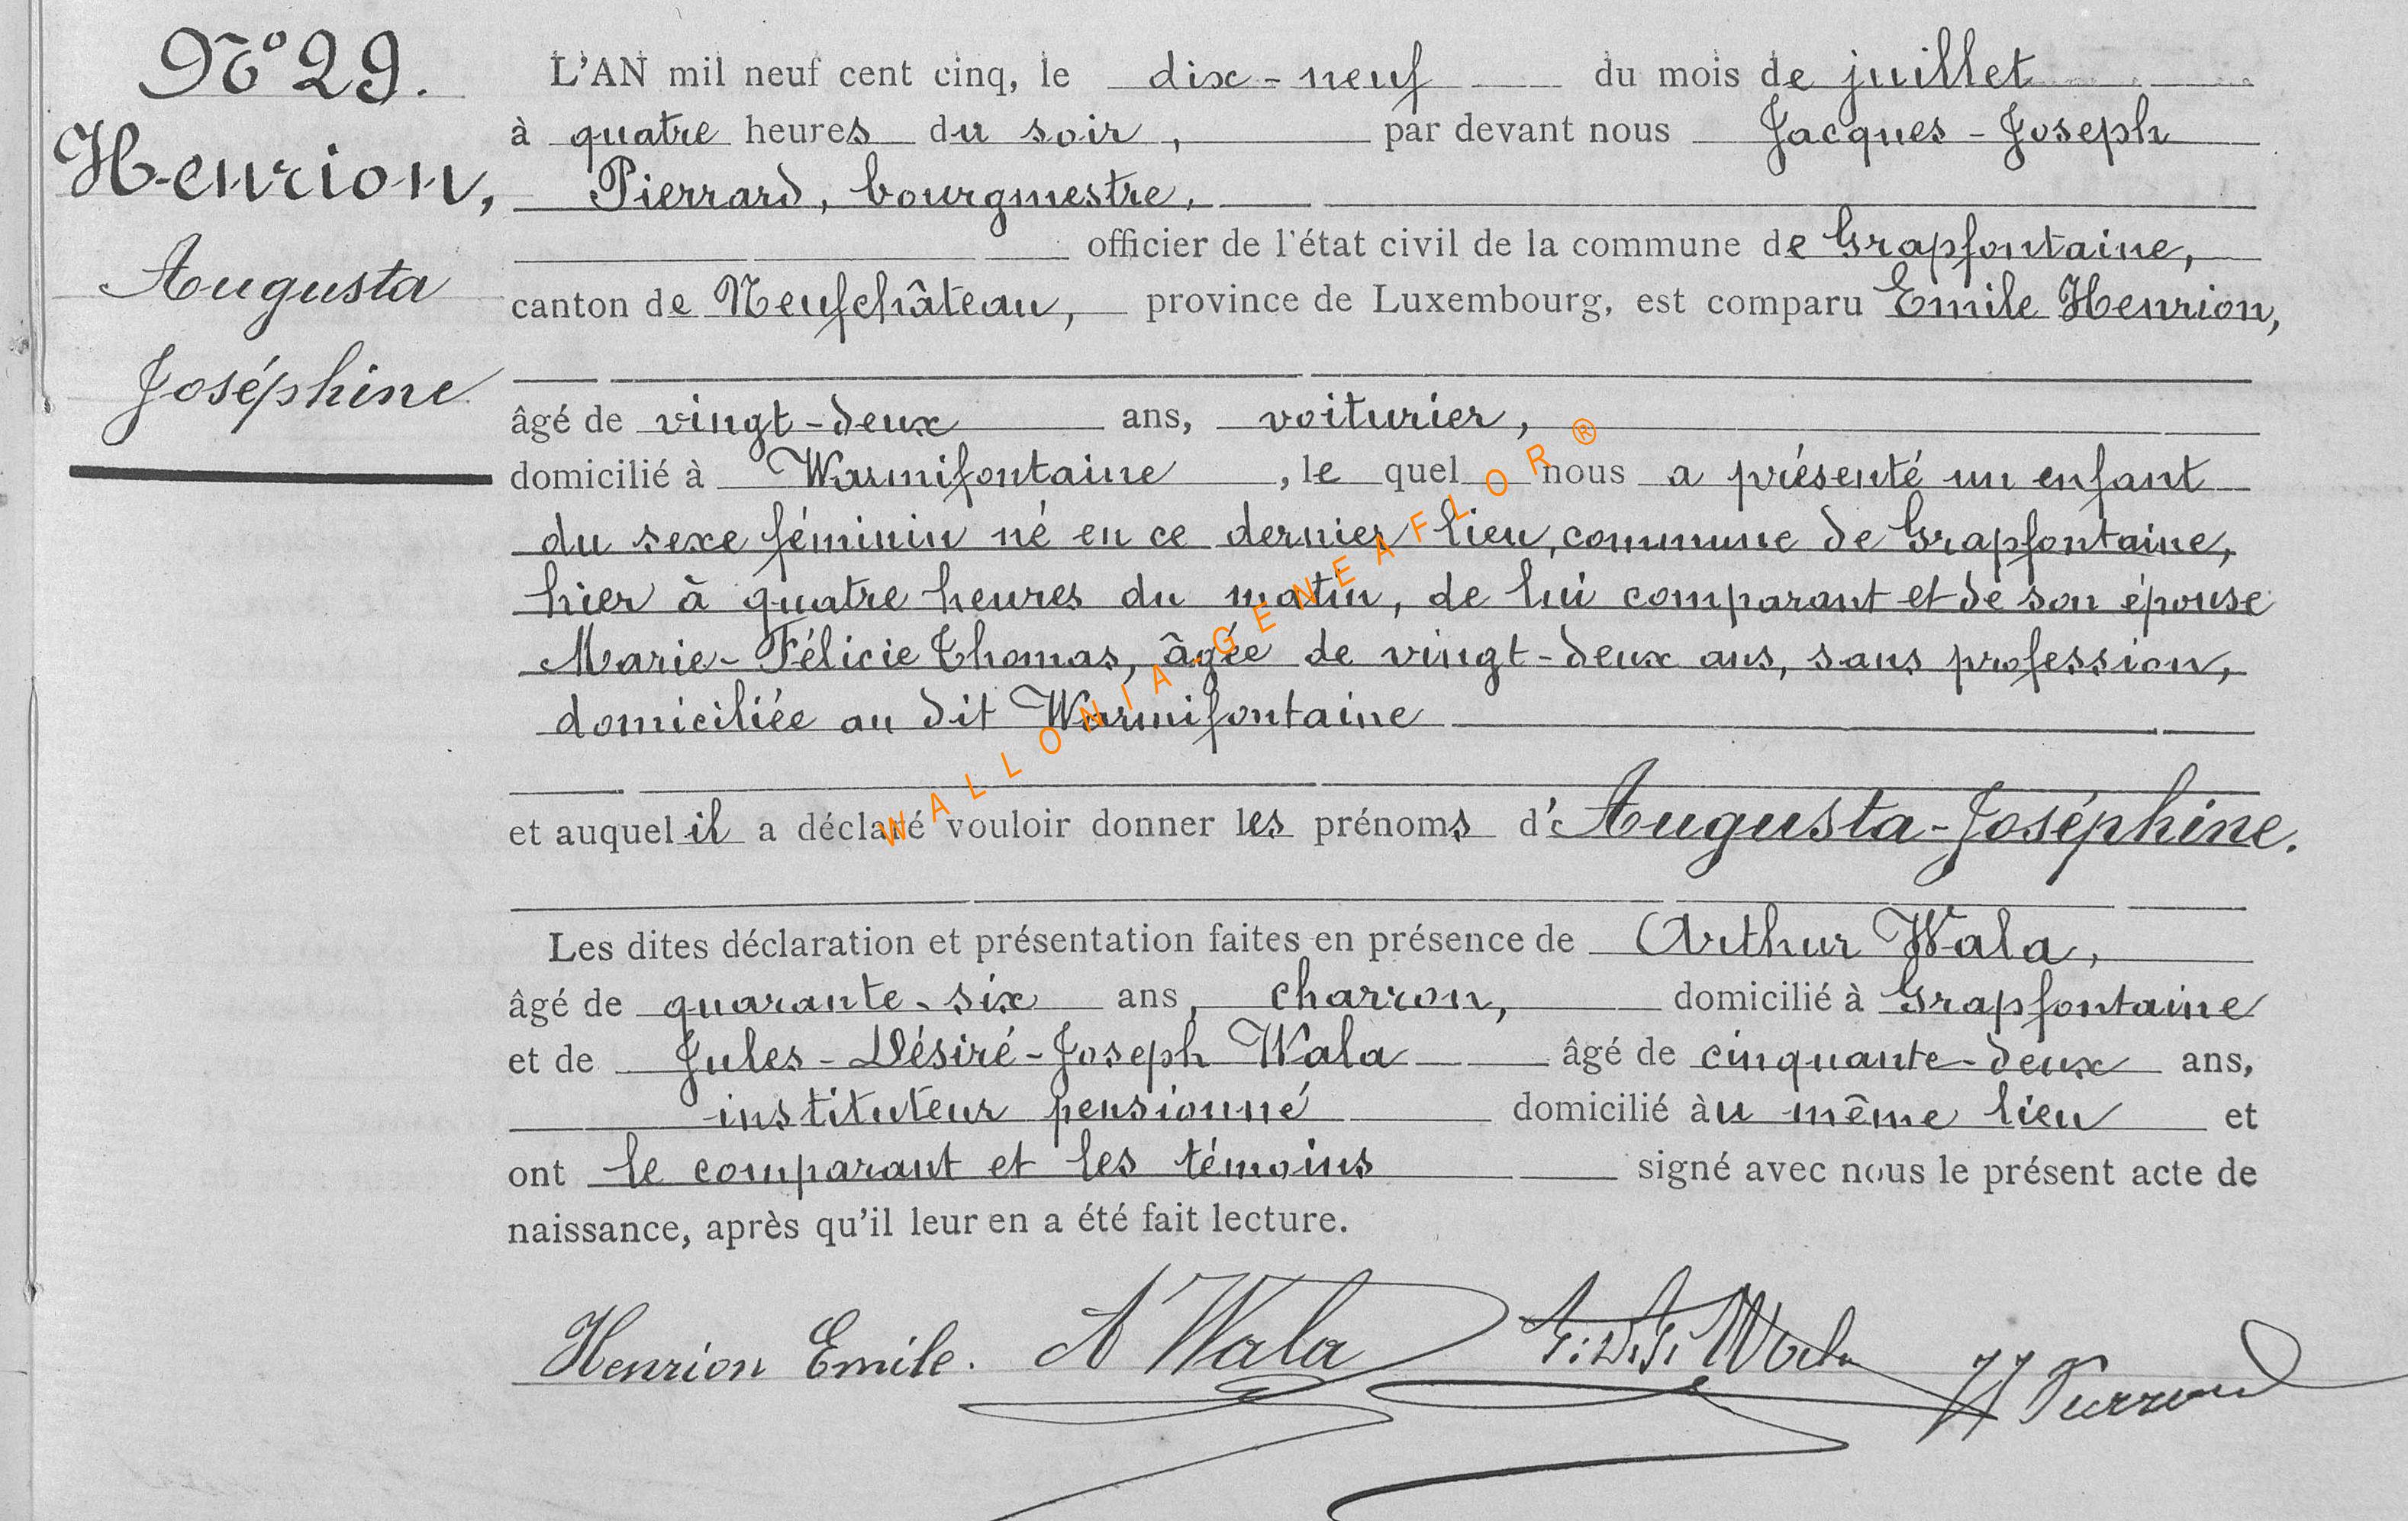 N° 29.
Henrion,
Augusta
Joséphine
L'AN mil neuf cent cinq, le dix-neuf du mois de juillet
à quatre heures du soir, par devant nous Jacques-Joseph
Pierrard, bourgmestre,
officier de l'état civil de la commune de Grapfontaine,
canton de Neufchâteau, province de Luxembourg, est comparu Emile Henrion,
âgé de vingt-deux ans, voiturier,
domicilié à Warmifontaine, le quel nous a présenté un enfant
du sexe féminin né en ce dernier lieu, commune de Grapfontaine,
hier à quatre heures du matin, de lui comparant et de son épouse
Marie-Félicie Thomas, âgée de vingt-deux ans, sans profession,
domiciliée au dit Warmifontaine
et auquel il a déclaré vouloir donner les prénoms d'Augusta-Joséphine.
Les dites déclaration et présentation faites en présence de Arthur Wala,
âgé de quarante-six ans, charron, domicilié à Grapfontaine
et de Jules-Désiré-Joseph Wala âgé de cinquante-deux ans,
instituteur pensionné domicilié àu même lieu et
ont le comparant et les témoins signé avec nous le présent acte de
naissance, après qu'il leur en a été fait lecture.
Henrion Emile. A Wala J.D.J. Wala JJ Pierrard
WALLONIA-GENEAFLOR®